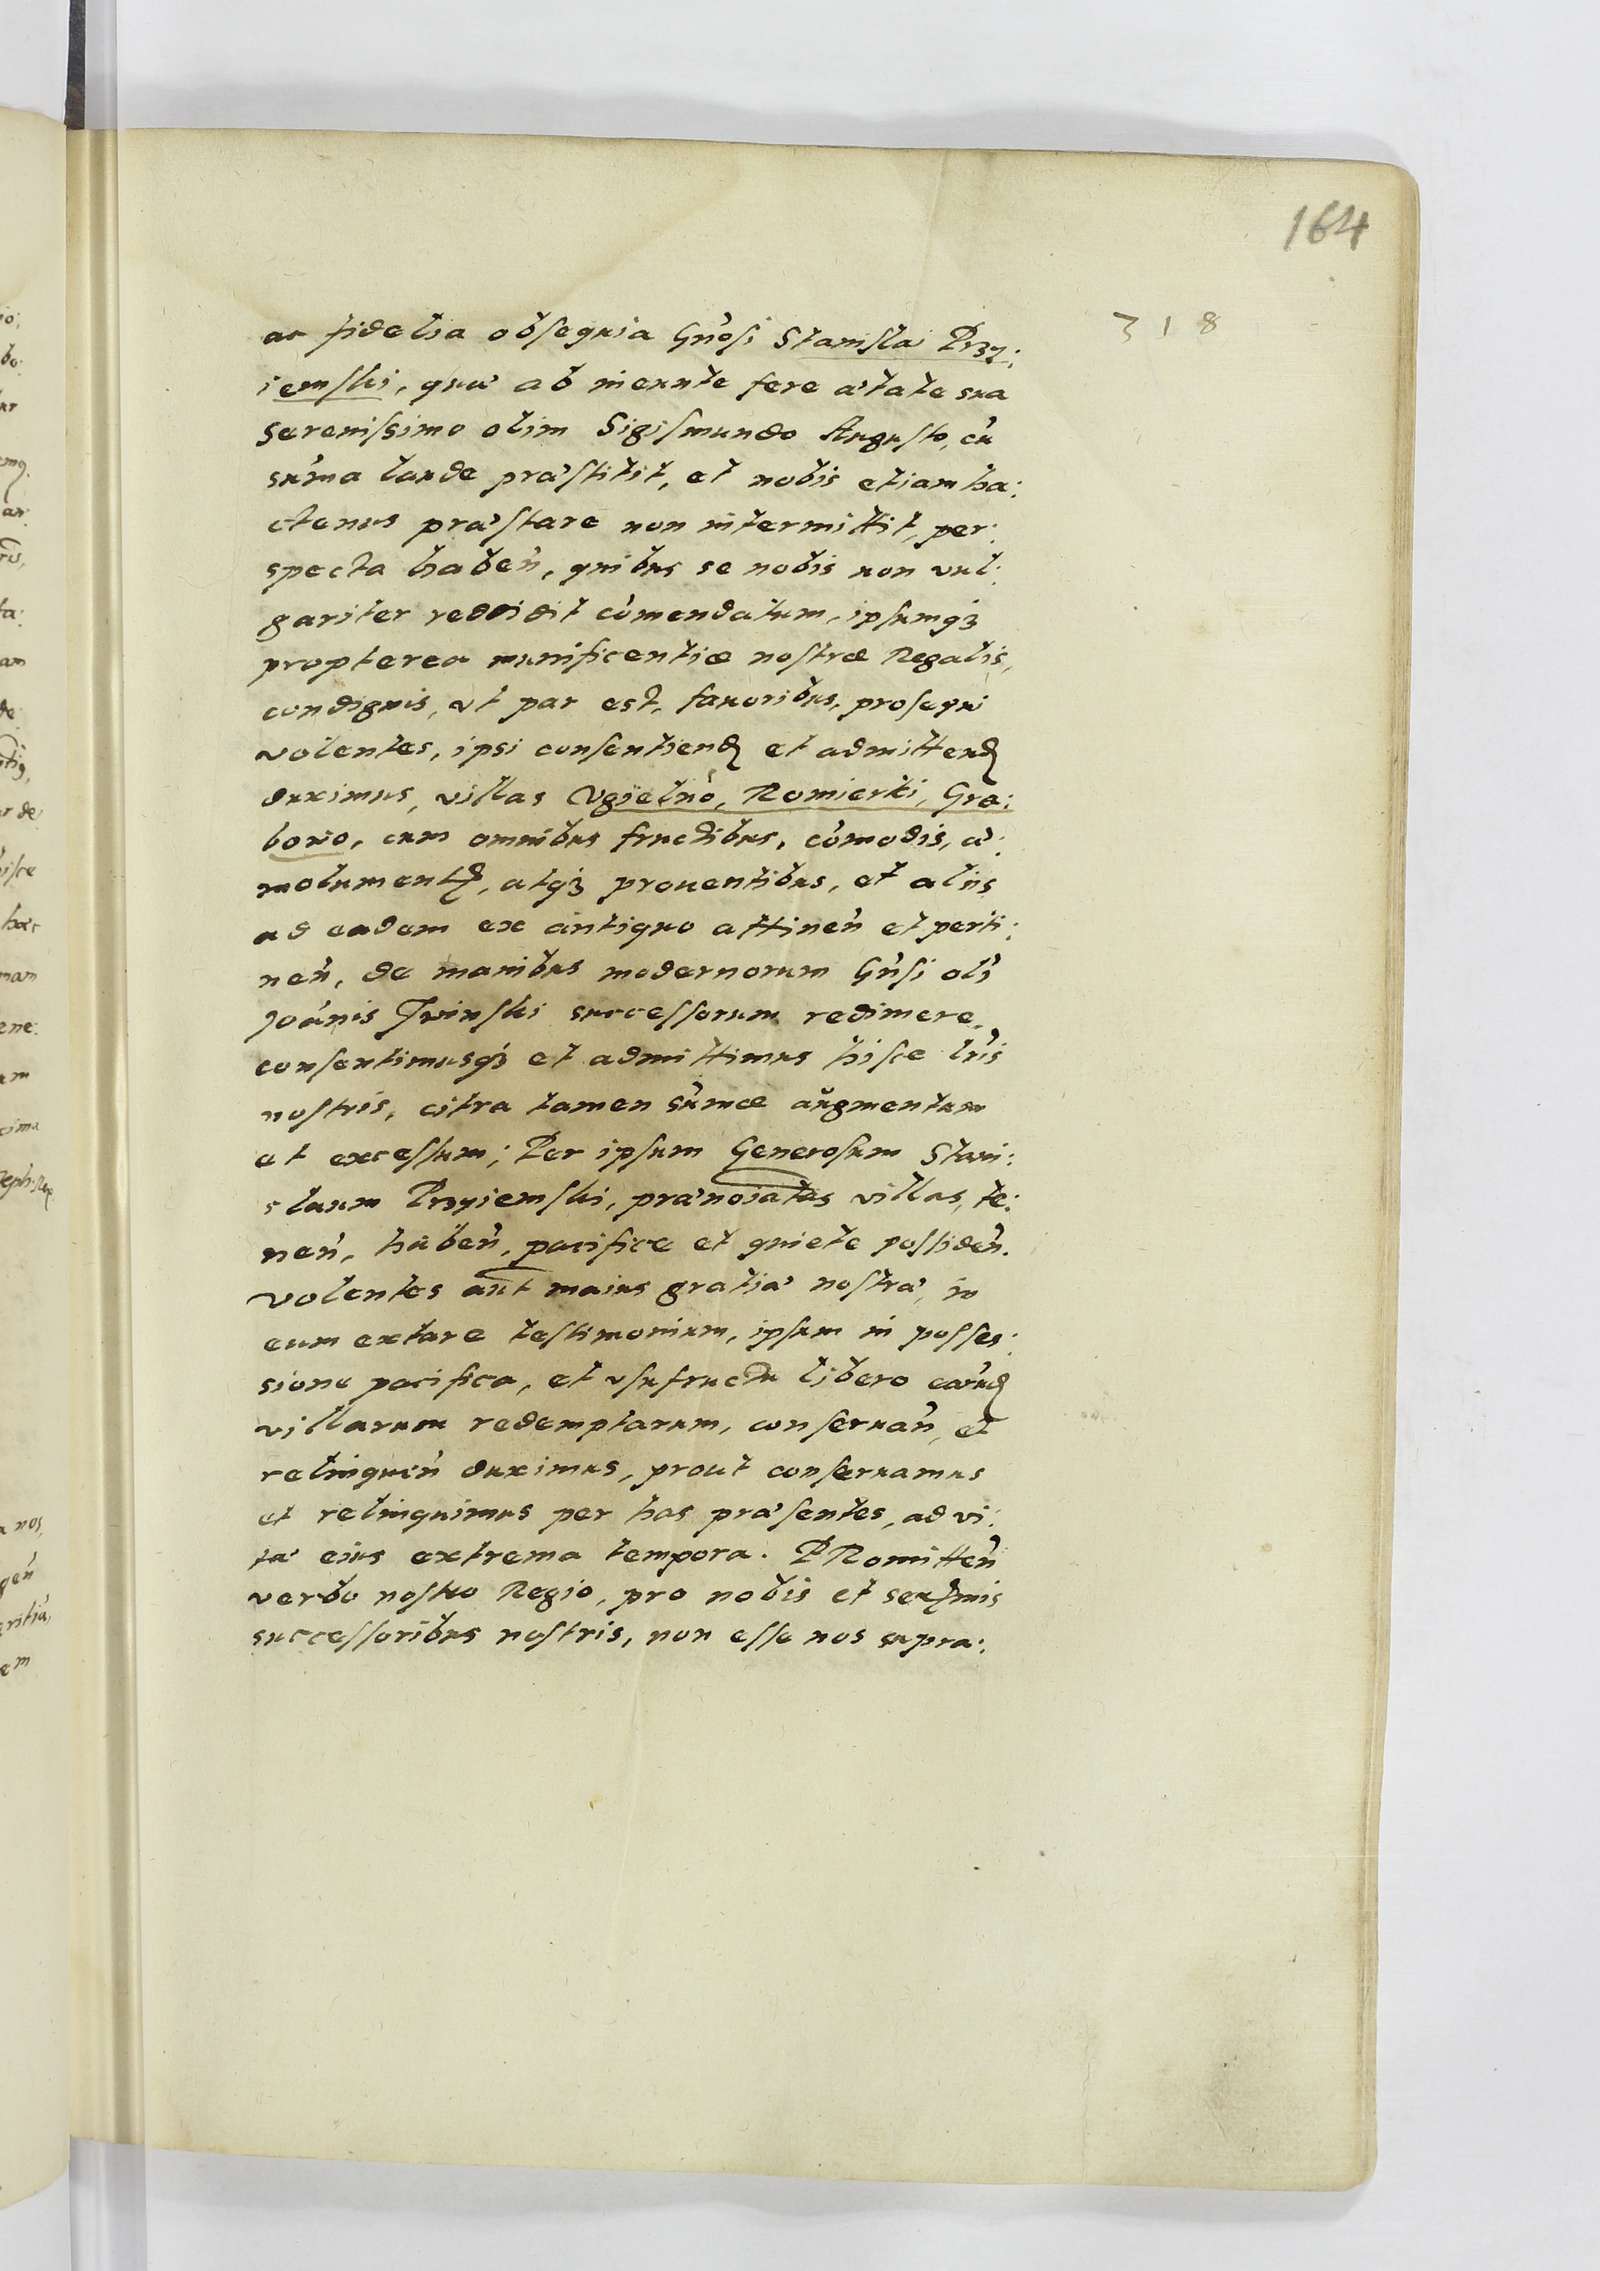 164
318
ac fidelia obsequia Gn̄osi Stanislai Przy:
iemski, quæ ab ineunte fere ætate sua
Serenissimo olim Sigismundo Augusto, cū
sūma laude præstitit, et nobis etiam ha:
ctenus præstare non intermittit, per:
specta haben̄, quibus se nobis non vul:
gariter reddidit cōmendatum, ipsumqȝ
propterea munificentiæ nostræ Regalis,
condignis, vt par est, fauoribus, prosequi
volentes, ipsi consentiend et admittend
duximus, villas Vgielno, Romierki, Gra:
bowo, cum omnibus fructibus, cōmodis, æ:
molument, atqȝ prouentibus, et alijs
ad eadem ex antiquo attinen̄ et perti:
nen̄, de manibus modernorum Gn̄si oli
Joānis Iwinski successorum redimere,
consentimusqȝ et admittimus hisce lr̄is
nostris, citra tamen sūmæ augmentum
et excessum; Per ipsum Generosum Stani:
slaum Przyiemski, prænoīatas villas, te:
nen̄, haben̄, pacifice et quiete possiden̄.
Volentes aūt maius gratiæ nostræ, in
eum extare testimonium, ipsum in posses:
sione pacifica, et vsufructu libero earūd
villarum redemptarum, conseruan̄, et
relinquen̄ duximus, prout conseruamus
et relinquimus per has præsentes, ad vi:
tæ eius extrema tempora. PRomitten̄
verbo nostro Regio, pro nobis et serẽmis
successoribus nostris, non esse nos supra: